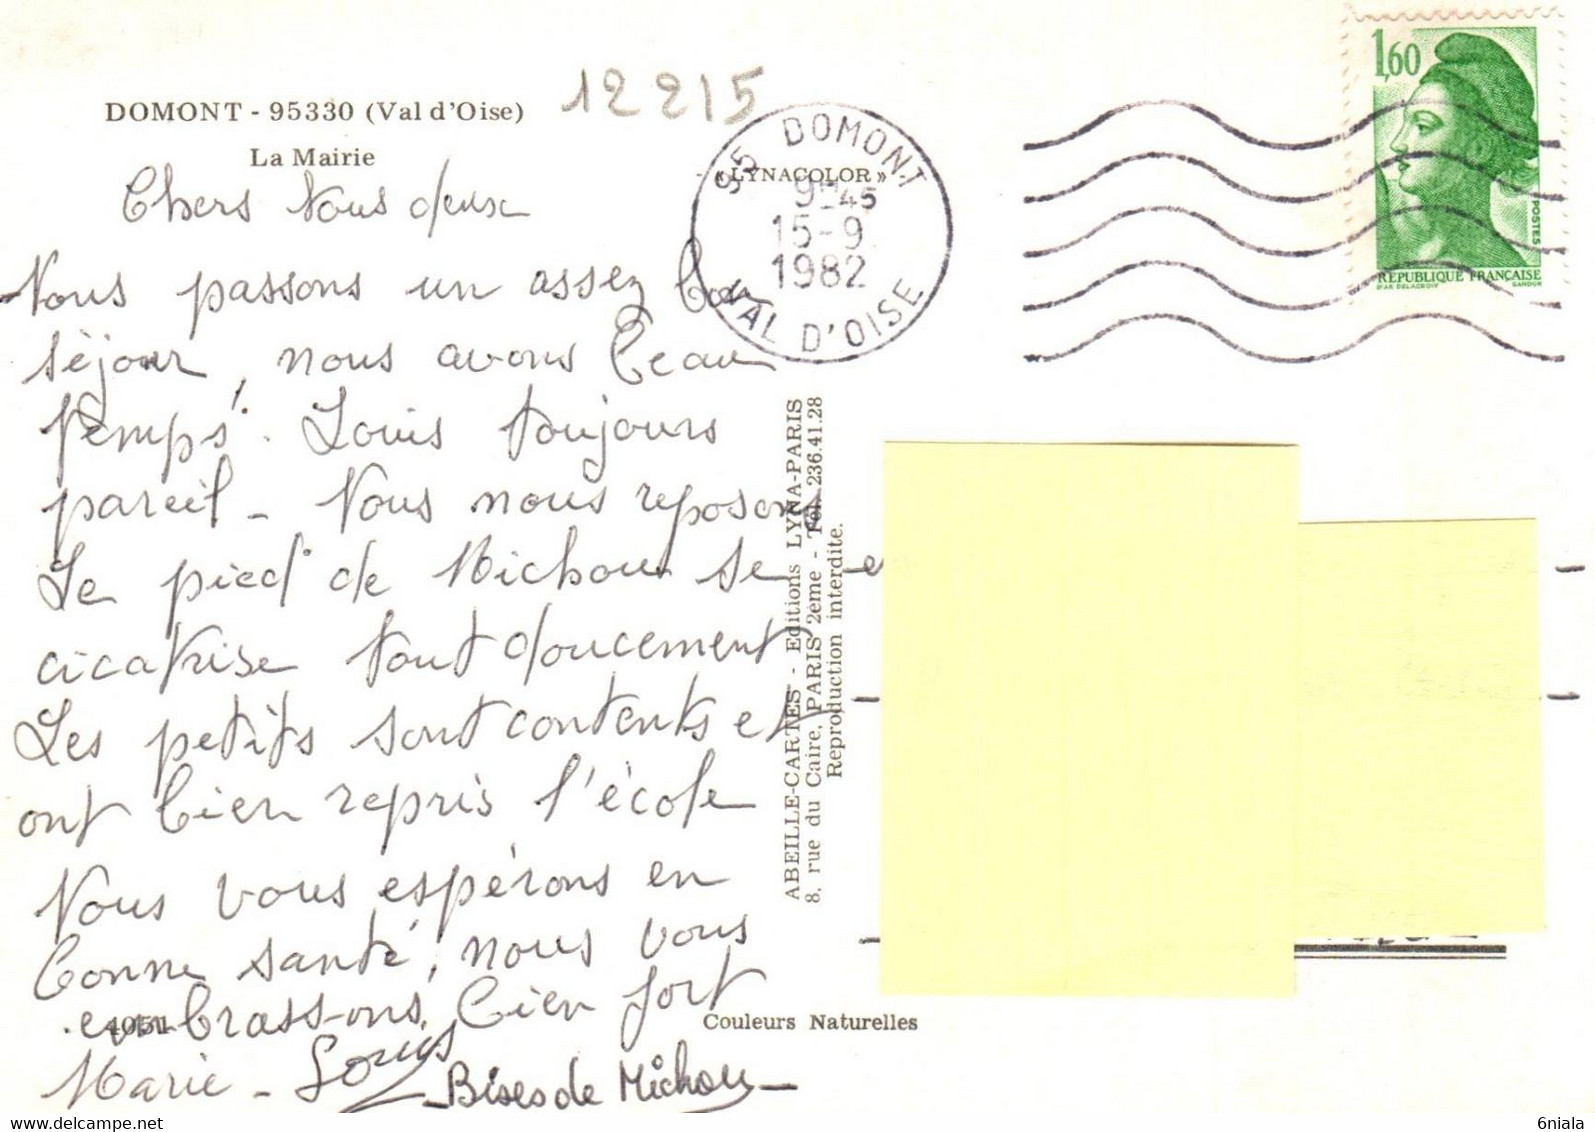 12215
DOMONT - 95330 (Val d'Oise)
La Mairie
« LYNACOLOR »
95 DOMONT
9H45
15-9
1982
VAL D'OISE
1,60
POSTES
REPUBLIQUE FRANÇAISE
D'AP. DELACROIX GANDON
Chers Vous deux
Nous passons un assez bon
séjour, nous avons beau
temps. Louis toujours
pareil - Nous nous reposons
Le pied de Michou se
cicatrise tout doucement
Les petits sont contents et
ont bien repris l'école
Nous vous espérons en
bonne santé, nous vous
embrassons bien fort
Marie - Louis
- Bises de Michou -
4051
ABEILLE-CARTES - Editions LYNA-PARIS
8, rue du Caire, PARIS 2ème - Tél. 236.41.28
Reproduction interdite.
Couleurs Naturelles
6niala